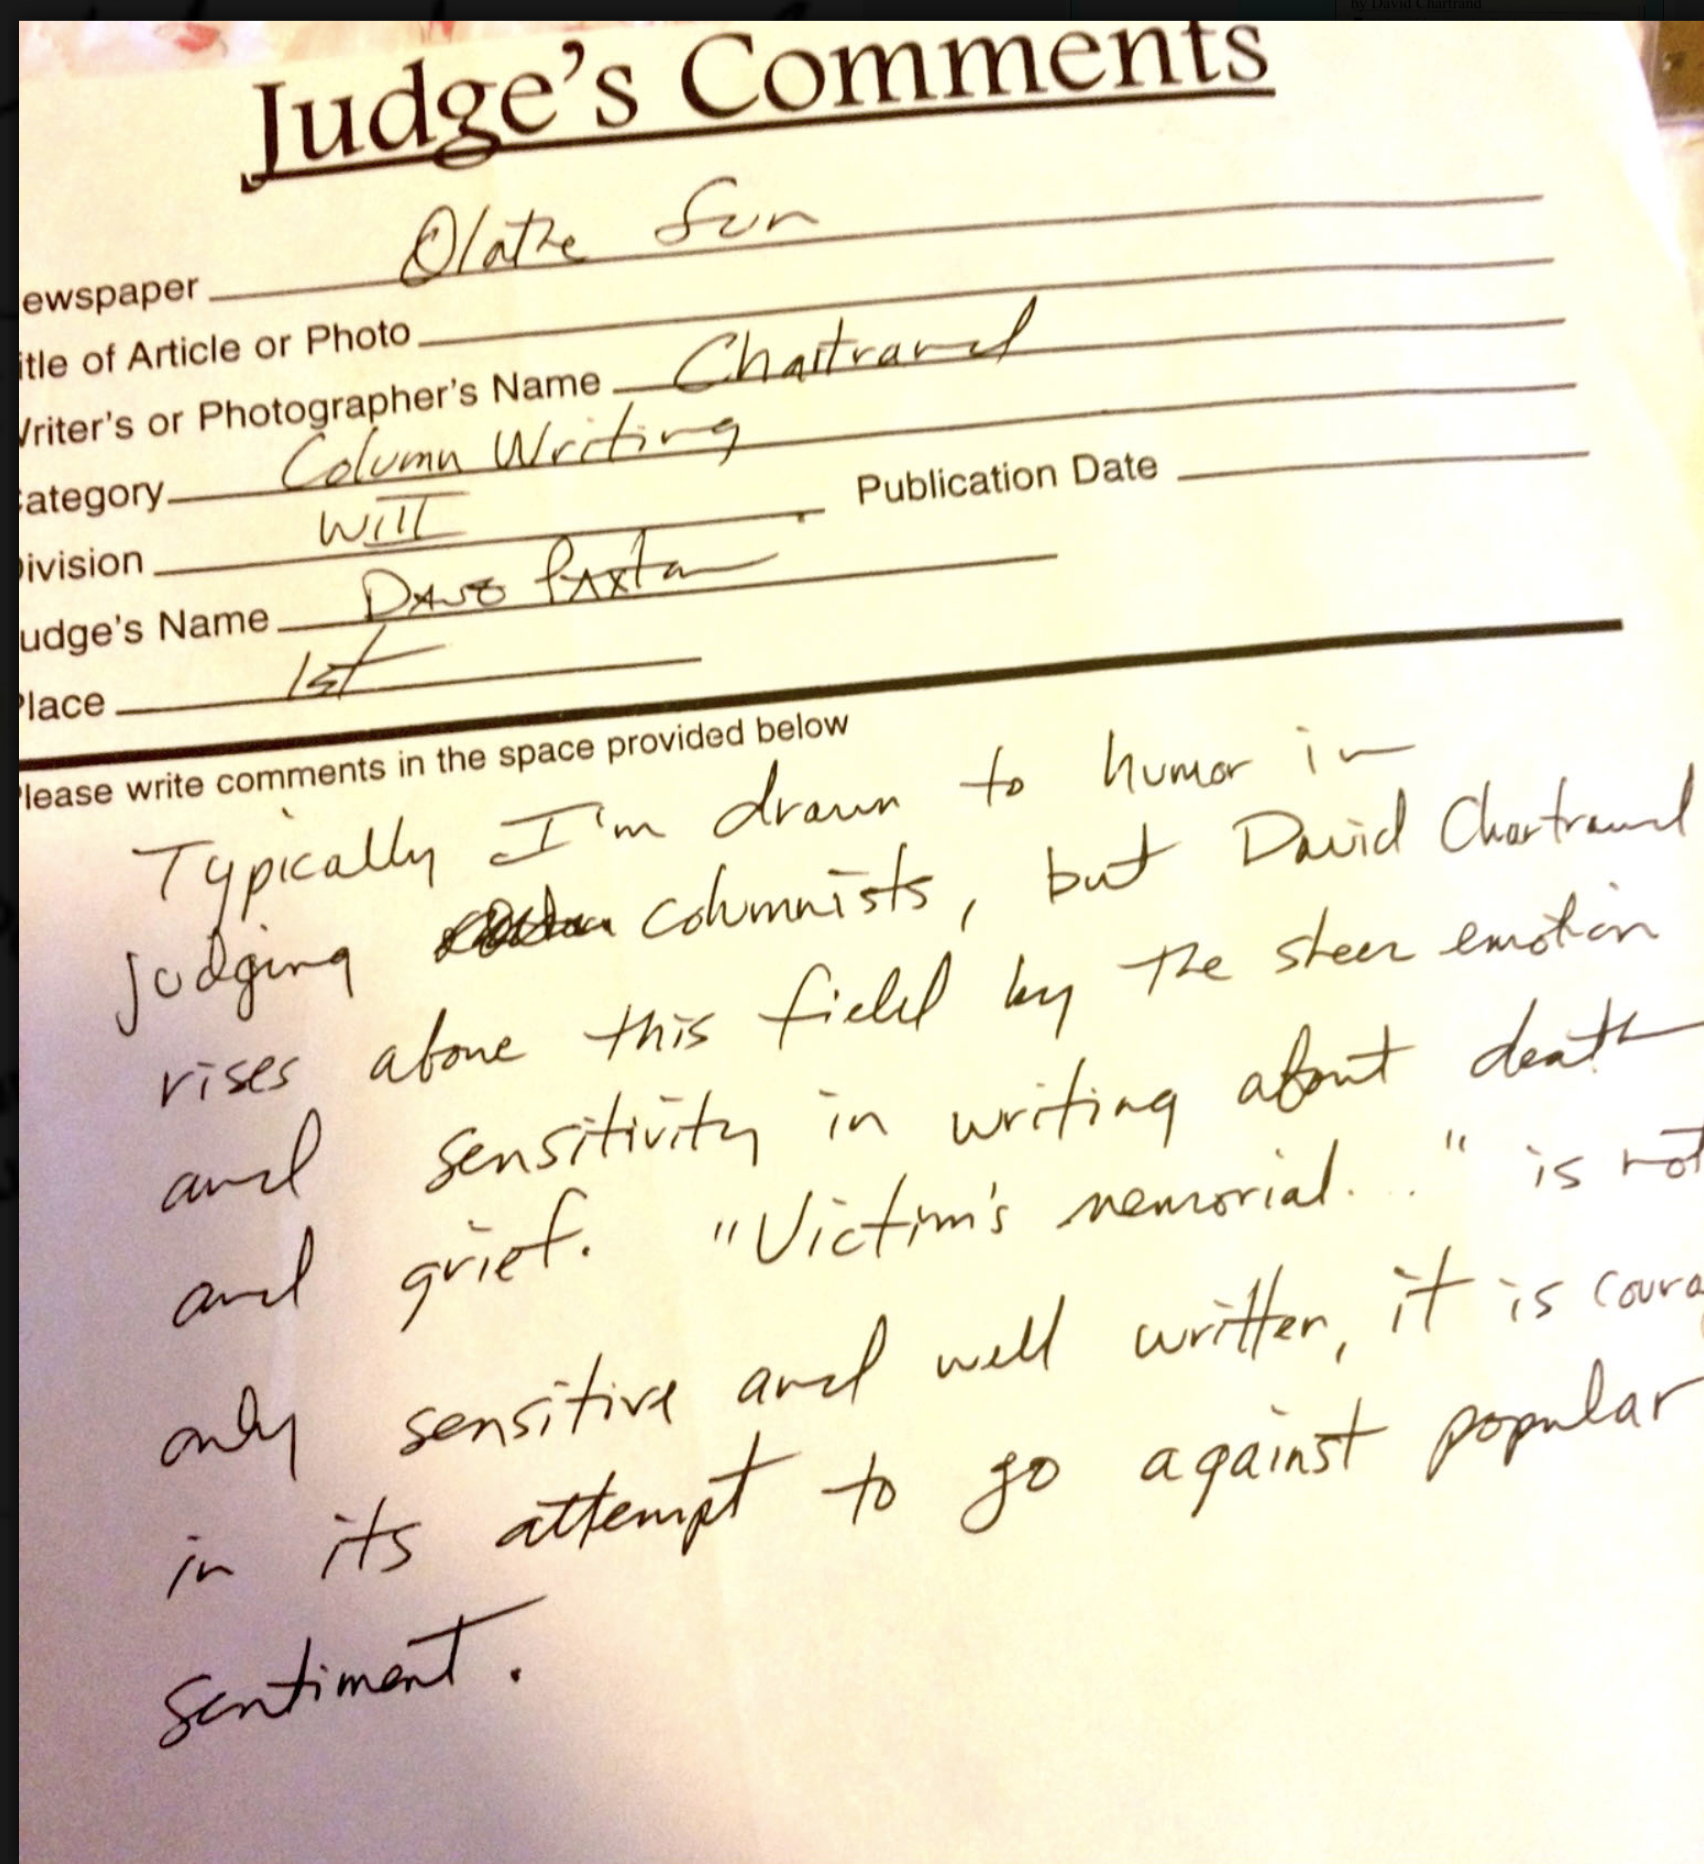 by David Chartrand
Judge's Comments
ewspaper Olathe Sun
itle of Article or Photo
riter's or Photographer's Name Chartrand
ategory Column Writing
ivision Publication Date
udge's Name Dave Paxton
lace 1st
lease write comments in the space provided below
Typically I'm drawn to humor in
judging columnists, but David Chartrand
rises above this field by the sheer emotion
and sensitivity in writing about death
and grief. "Victim's memorial..." is not
only sensitive and well written, it is coura
in its attempt to go against popular
sentiment.